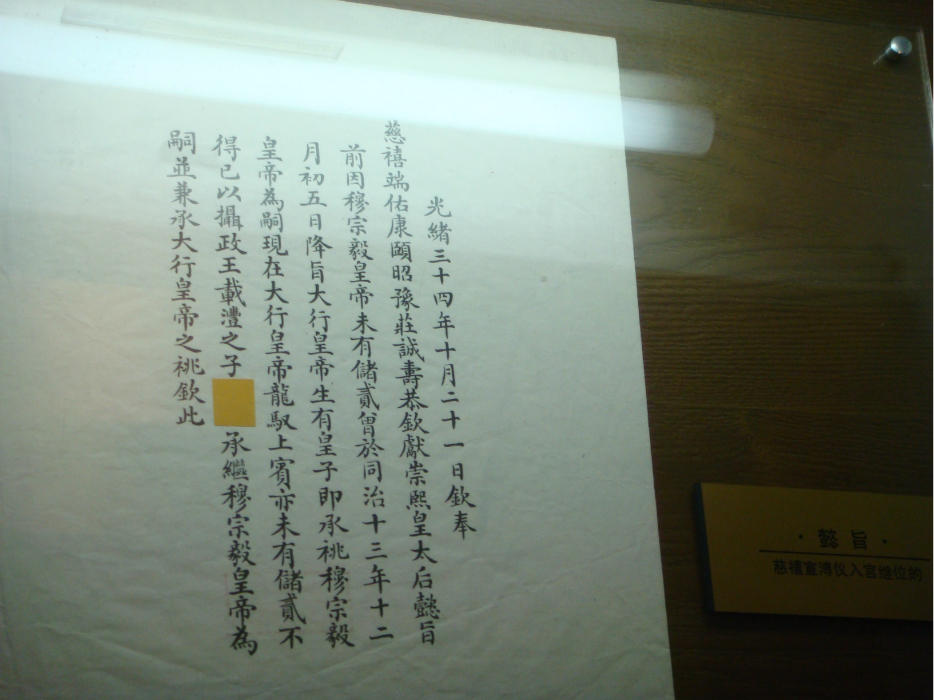 光緒三十四年十月二十一日欽奉
慈禧端佑康頤昭豫莊誠壽恭欽獻崇熙皇太后懿旨
前因穆宗毅皇帝未有儲貳曾於同治十三年十二
月初五日降旨大行皇帝生有皇子即承祧穆宗毅
皇帝為嗣現在大行皇帝龍馭上賓亦未有儲貳不
得已以攝政王載灃之子承繼穆宗毅皇帝為
嗣並兼承大行皇帝之祧欽此
·懿旨·
慈禧宣溥仪入宫继位的